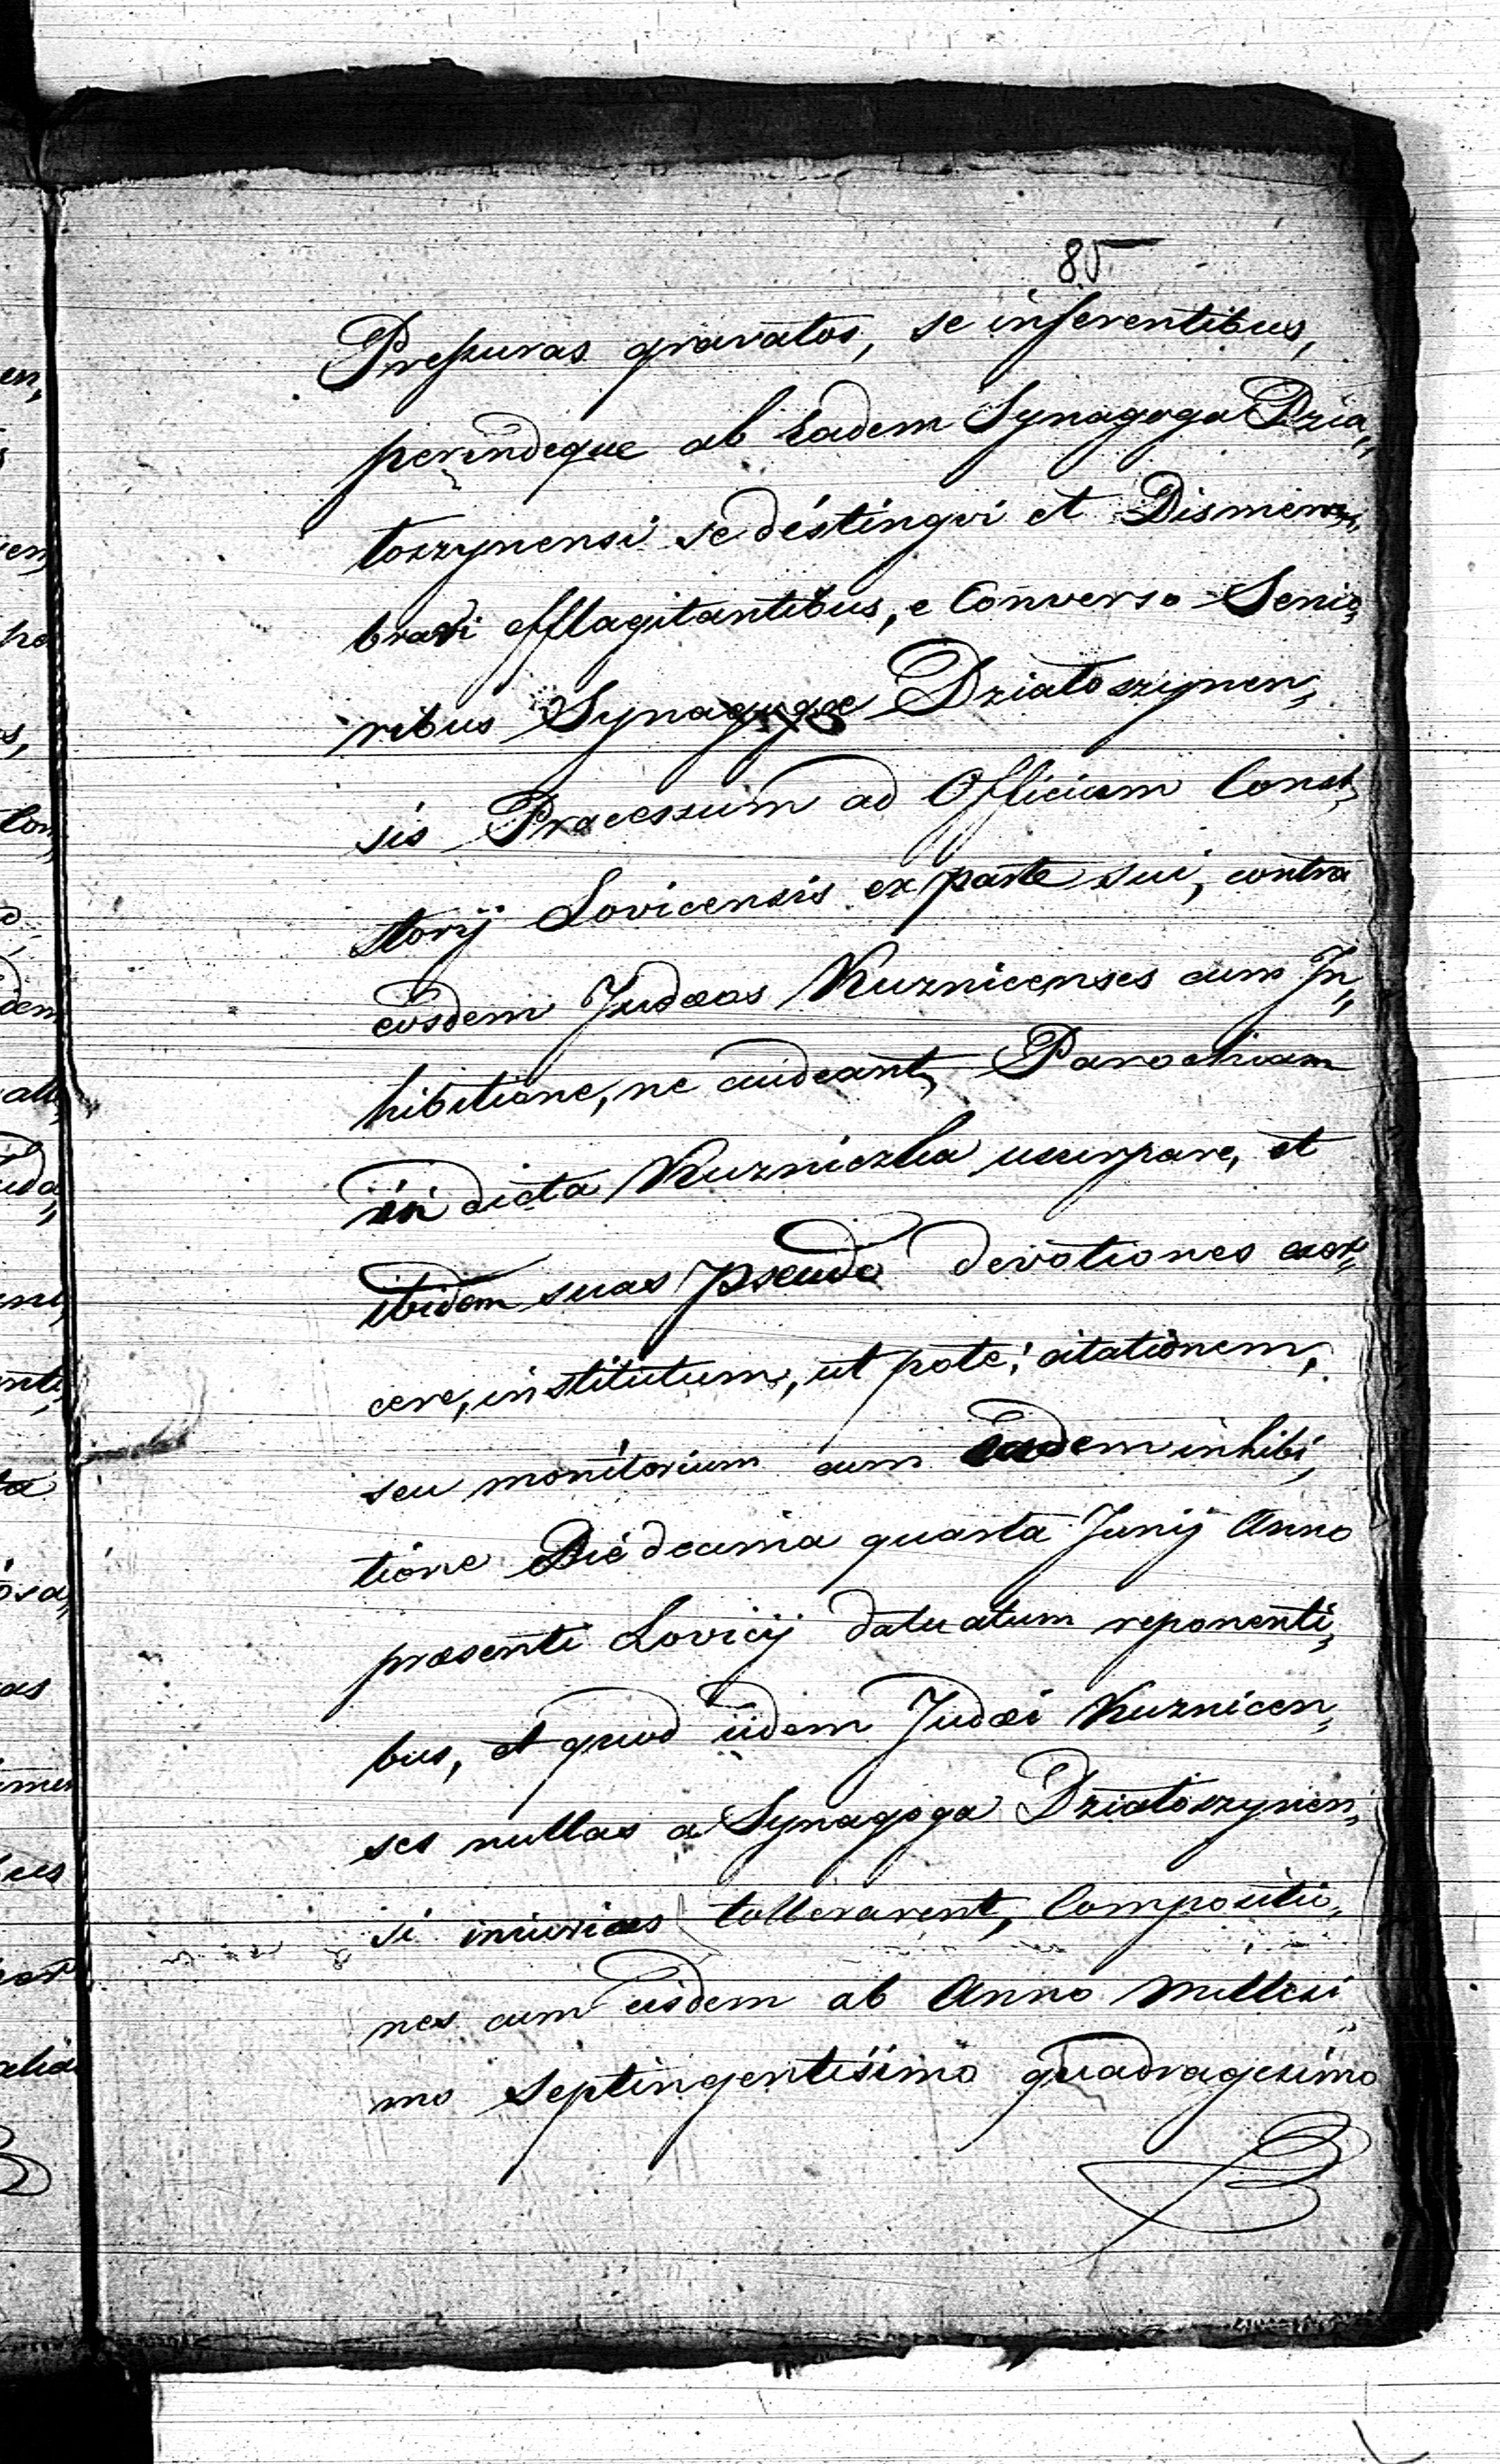 85
Preßuras gravatos, se inferentibus,
perindeque ab Eadem Synagoga Dzia„
toszynensi se distingvi et Dismem„
brari efflagitantibus, e Converso Senio„
ribus Synagogæ Dziatoszynen„
sis Processum ad Officium Consi„
storij Lovicensis ex parte sui, contra
eosdem Judæos Kuznicenses cum In„
hibitione, ne audeant, Parochiam
in dicta Kuzniczka usurpare, et
ibidem suas pseudo devotiones exer„
cere, institutum, ut pote; citationem,
seu monitorium cum Eadem inhibi„
tione Die decima quarta Junij Anno
præsenti Lovicij datu atum reponenti„
bus, et quod iidem Judæi Kuznicen„
ses nullas a Synagoga Dziatoszynen„
si iniurias tollerarent, Compositio„
nes cum eisdem ab Anno Millesi„
mo Septingentisimo quadragesimo